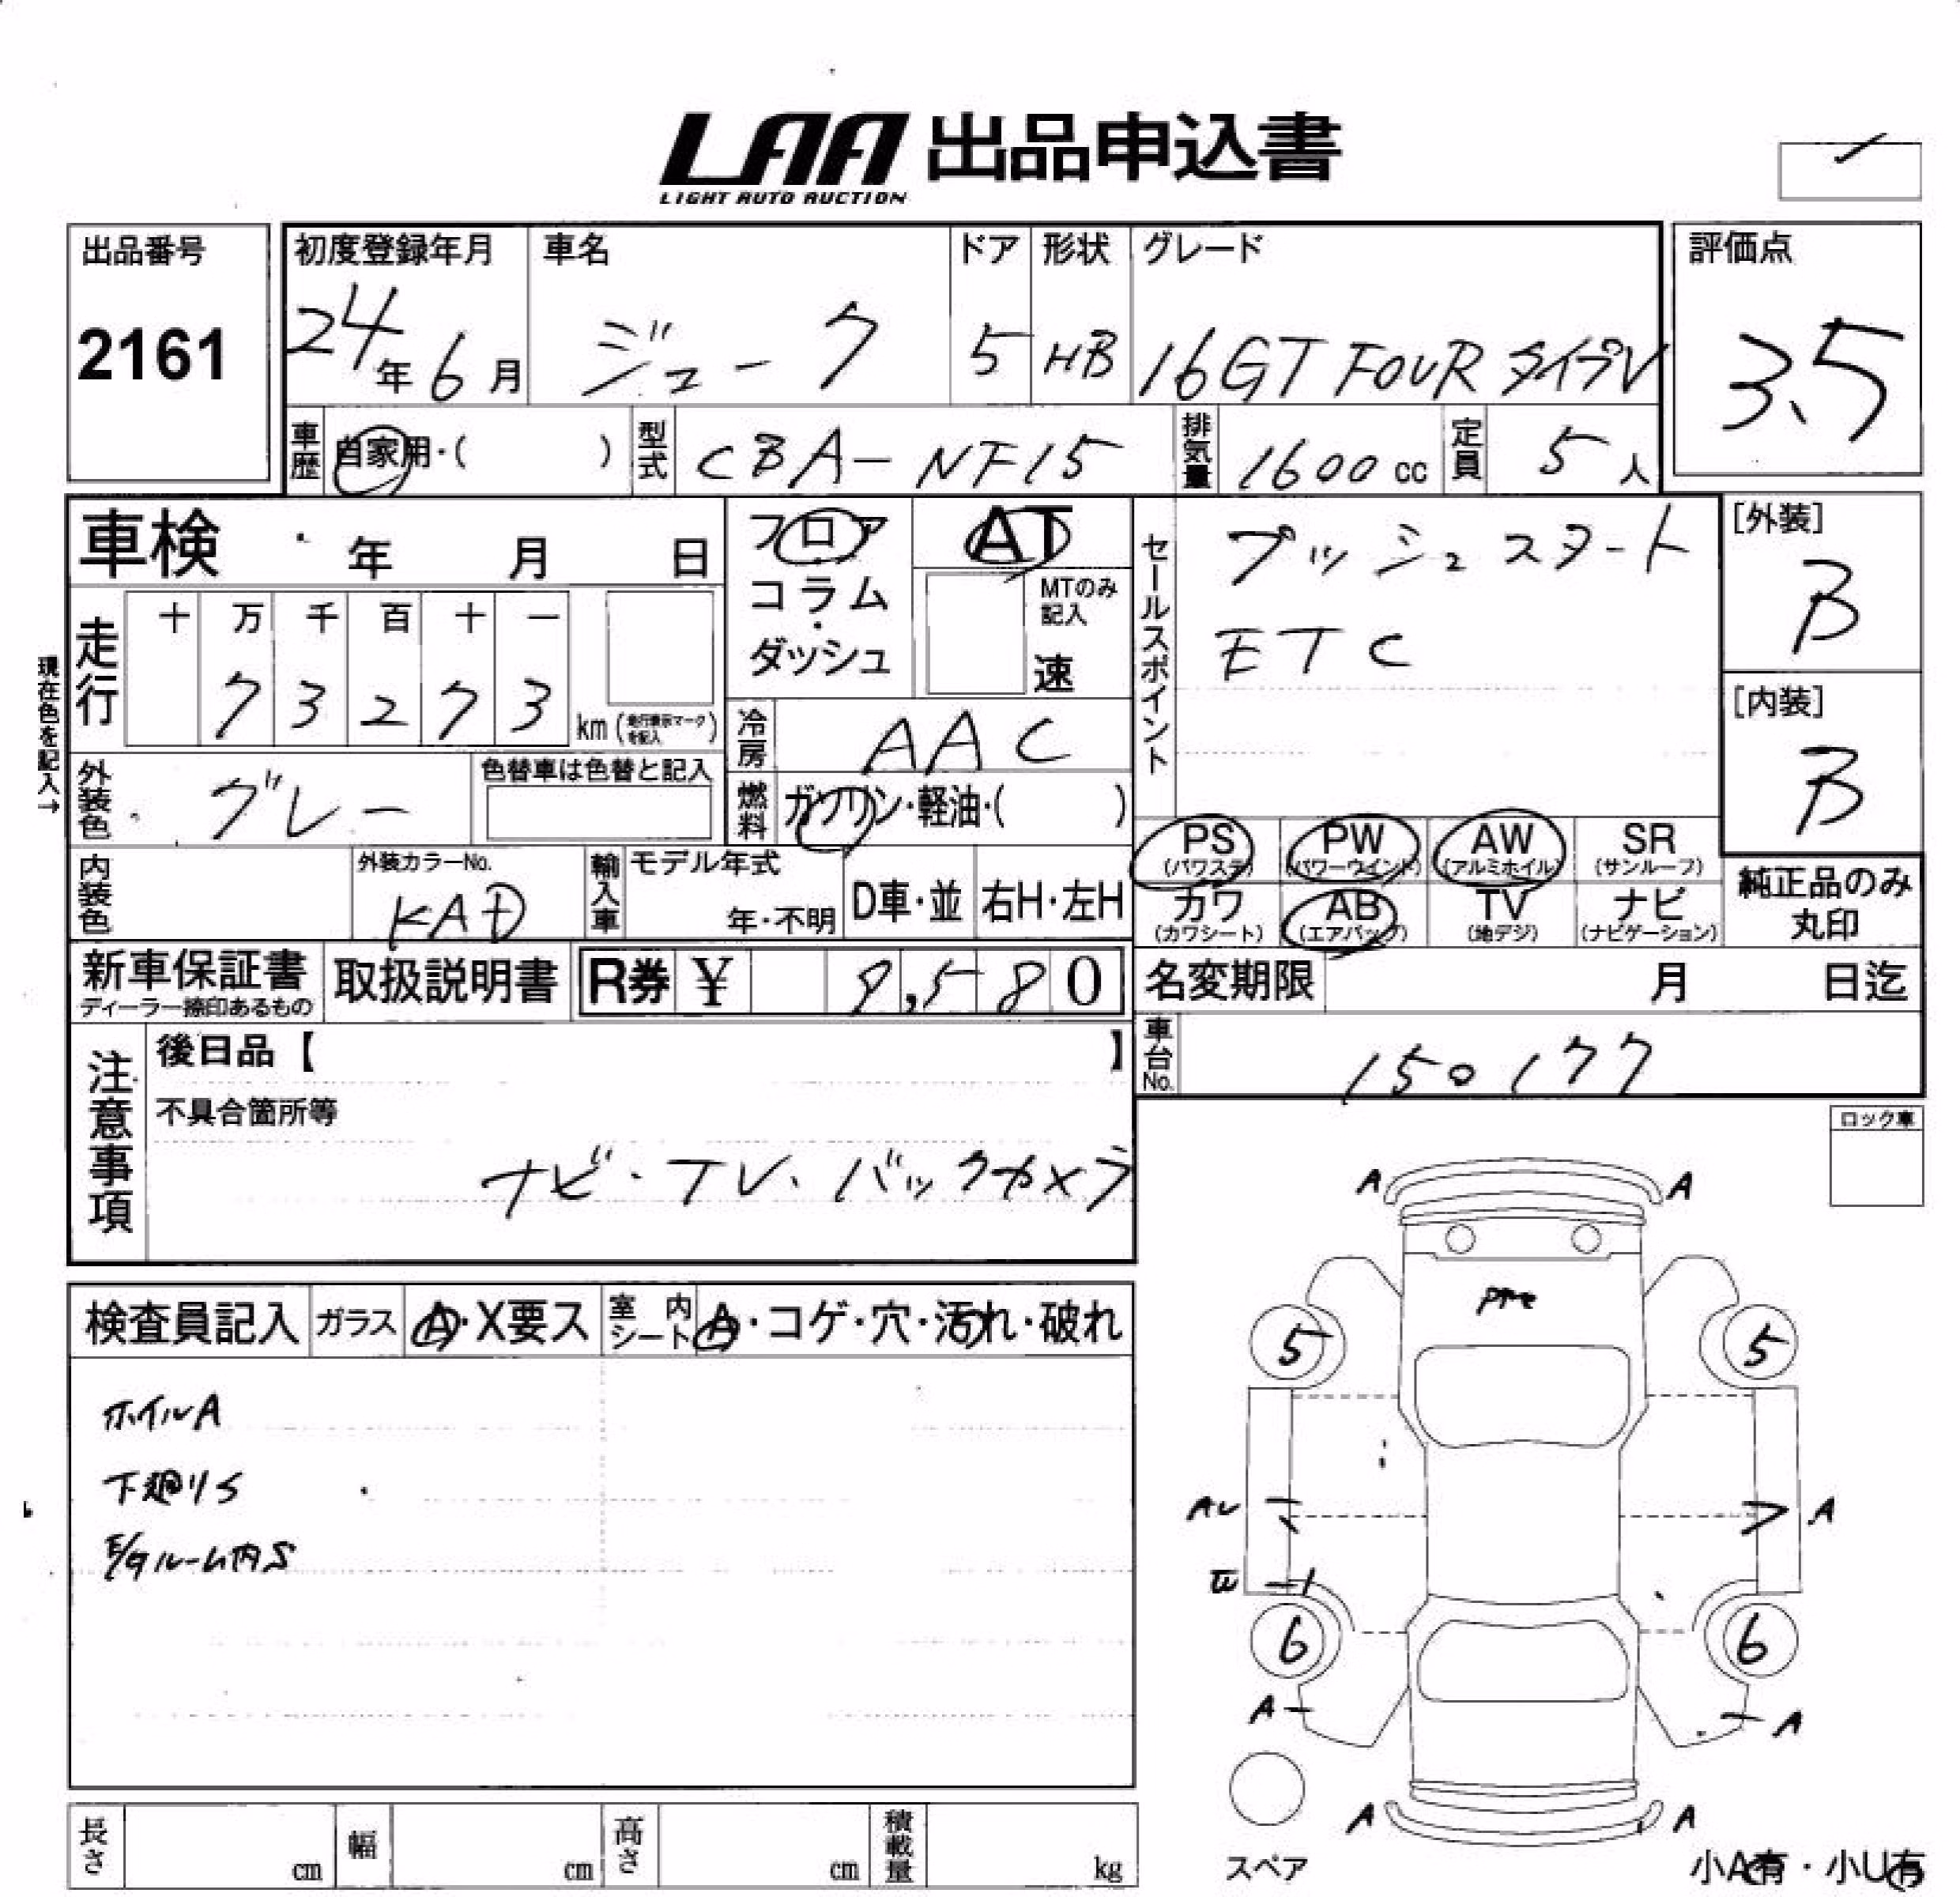 LAA 出品申込書
LIGHT AUTO AUCTION
出品番号
2161
初度登録年月
24年6月
車名
ジューク
ドア
5
形状
HB
グレード
16GT FOUR タイプV
評価点
3.5
車歴
自家用・( )
型式
CBA-NF15
排気量
1600cc
定員
5人
車検 年 月 日
フロア
コラム
・
ダッシュ
AT
MTのみ
記入
速
セールスポイント
プッシュスタート
ETC
[外装]
B
[内装]
B
現在色を記入→
走行
十 万 千 百 十 一
7 3 2 7 3
km(走行表示マークを記入)
冷房
AAC
外装色
グレー
色替車は色替と記入
燃料
ガソリン・軽油・( )
PS
(パワステ)
PW
(パワーウインド)
AW
(アルミホイル)
SR
(サンルーフ)
内装色
外装カラーNo.
KAD
輸入車
モデル年式
年・不明
D車・並
右H・左H
カワ
(カワシート)
AB
(エアバッグ)
TV
(地デジ)
ナビ
(ナビゲーション)
純正品のみ
丸印
新車保証書
ディーラー捺印あるもの
取扱説明書
R券 ¥ 9,580
名変期限 月 日迄
注意事項
後日品【 】
不具合箇所等
ナビ・TV・バックカメラ
車台No.
150177
ロック車
検査員記入
ガラス
A・X要ス
室内シート
A・コゲ・穴・汚れ・破れ
ホイルA
下廻りS
E/gルーム内S
A A
5 5
AU A
6 6
A A
A A
スペア
小A有・小U有
長さ cm
幅 cm
高さ cm
積載量 kg